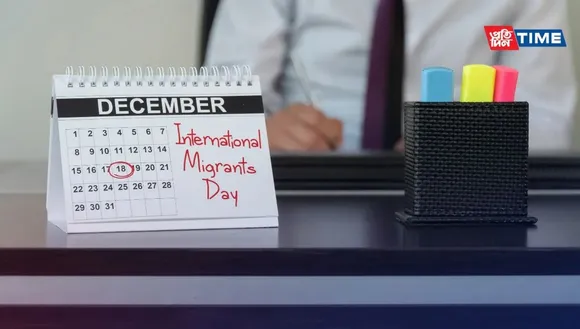 প্রতিদিন TIME
DECEMBER
1 2 3 4 5 6 7
8 9 10 11 12 13 14
15 16 17 18 19 20 21
22 23 24 25 26 27 28
29 30 31
International
Migrants
Day